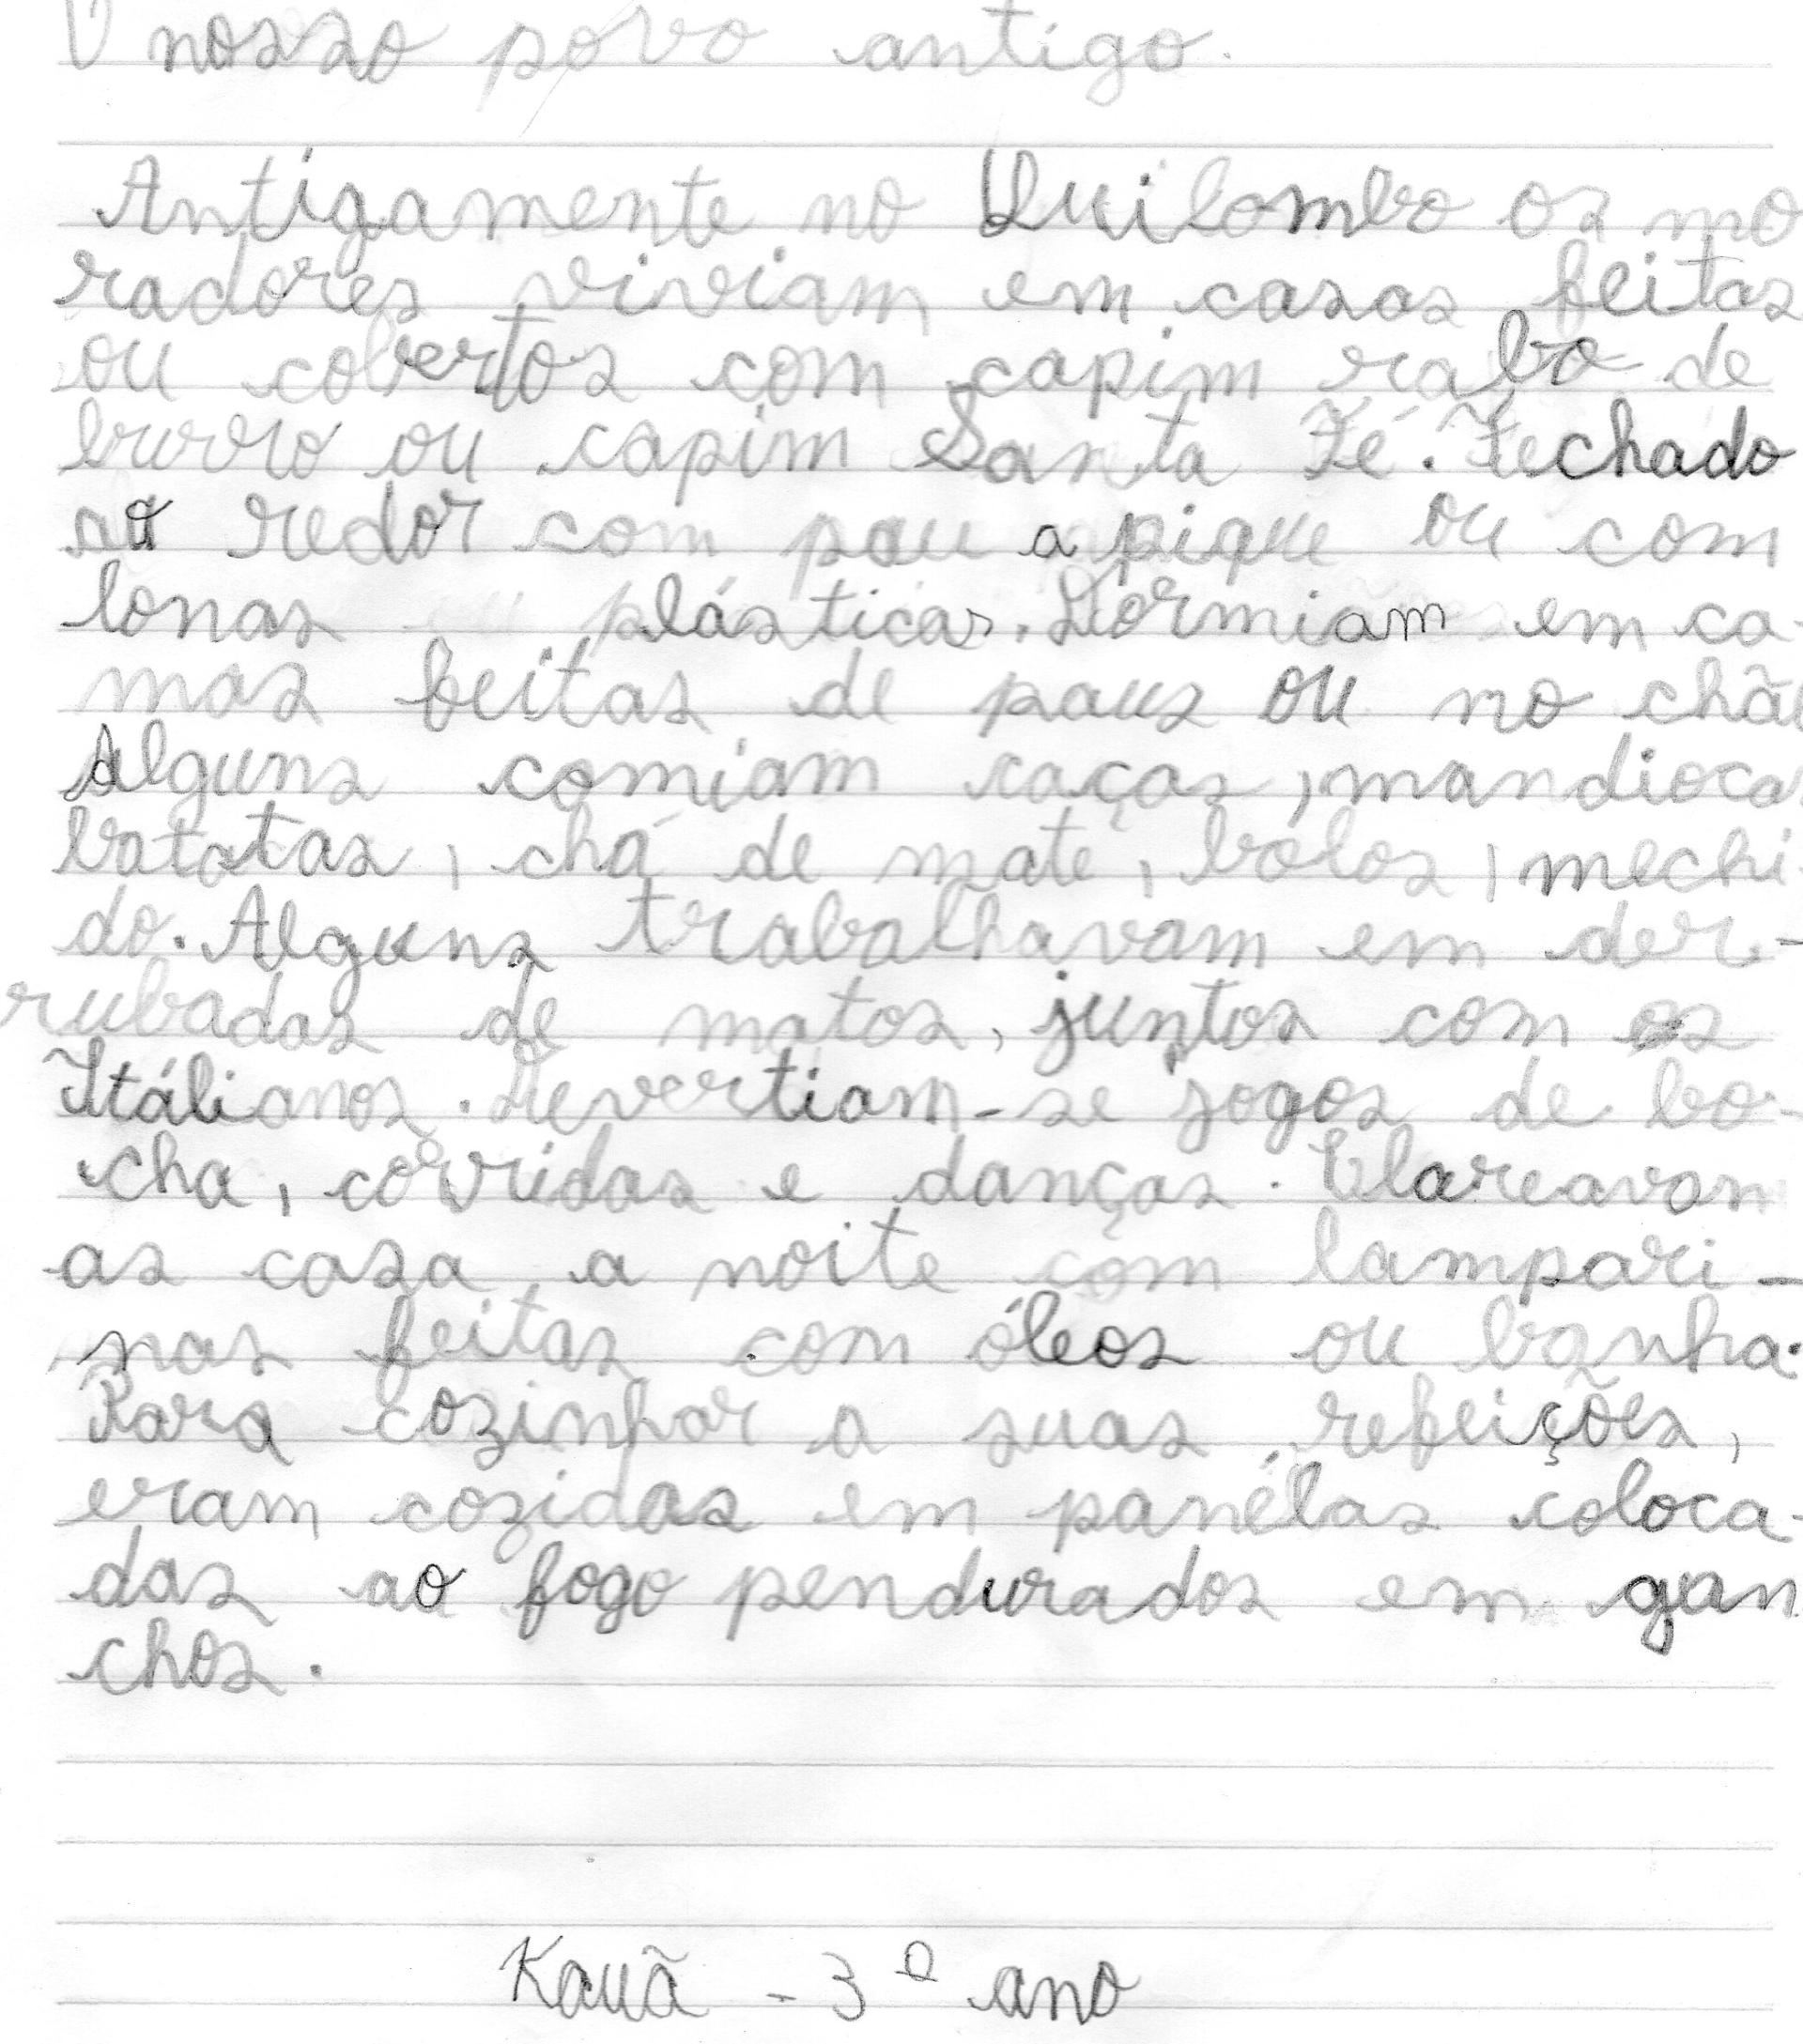 O nosso povo antigo.
Antigamente no Quilombo os mo
radores viviam em casas feitas
ou cobertos com capim rabo de
burro ou capim Santa Fé. Fechado
ao redor com pau a pique ou com
lonas plásticas. Dormiam em ca-
mas feitas de paus ou no chão
Alguns comiam caças, mandioca
batatas, chá de mate, bolos, mechi-
do. Alguns trabalhavam em der-
rubadas de matos, juntos com os
Itálianos. Devertiam-se jogos de bo-
cha, corridas e danças. Clareavam
as casa a noite com lampari-
nas feitas com óleos ou banha.
Para cozinhar a suas refeições,
eram cozidas em panelas coloca-
das ao fogo pendurados em gan
chos.
Kauã - 3º ano